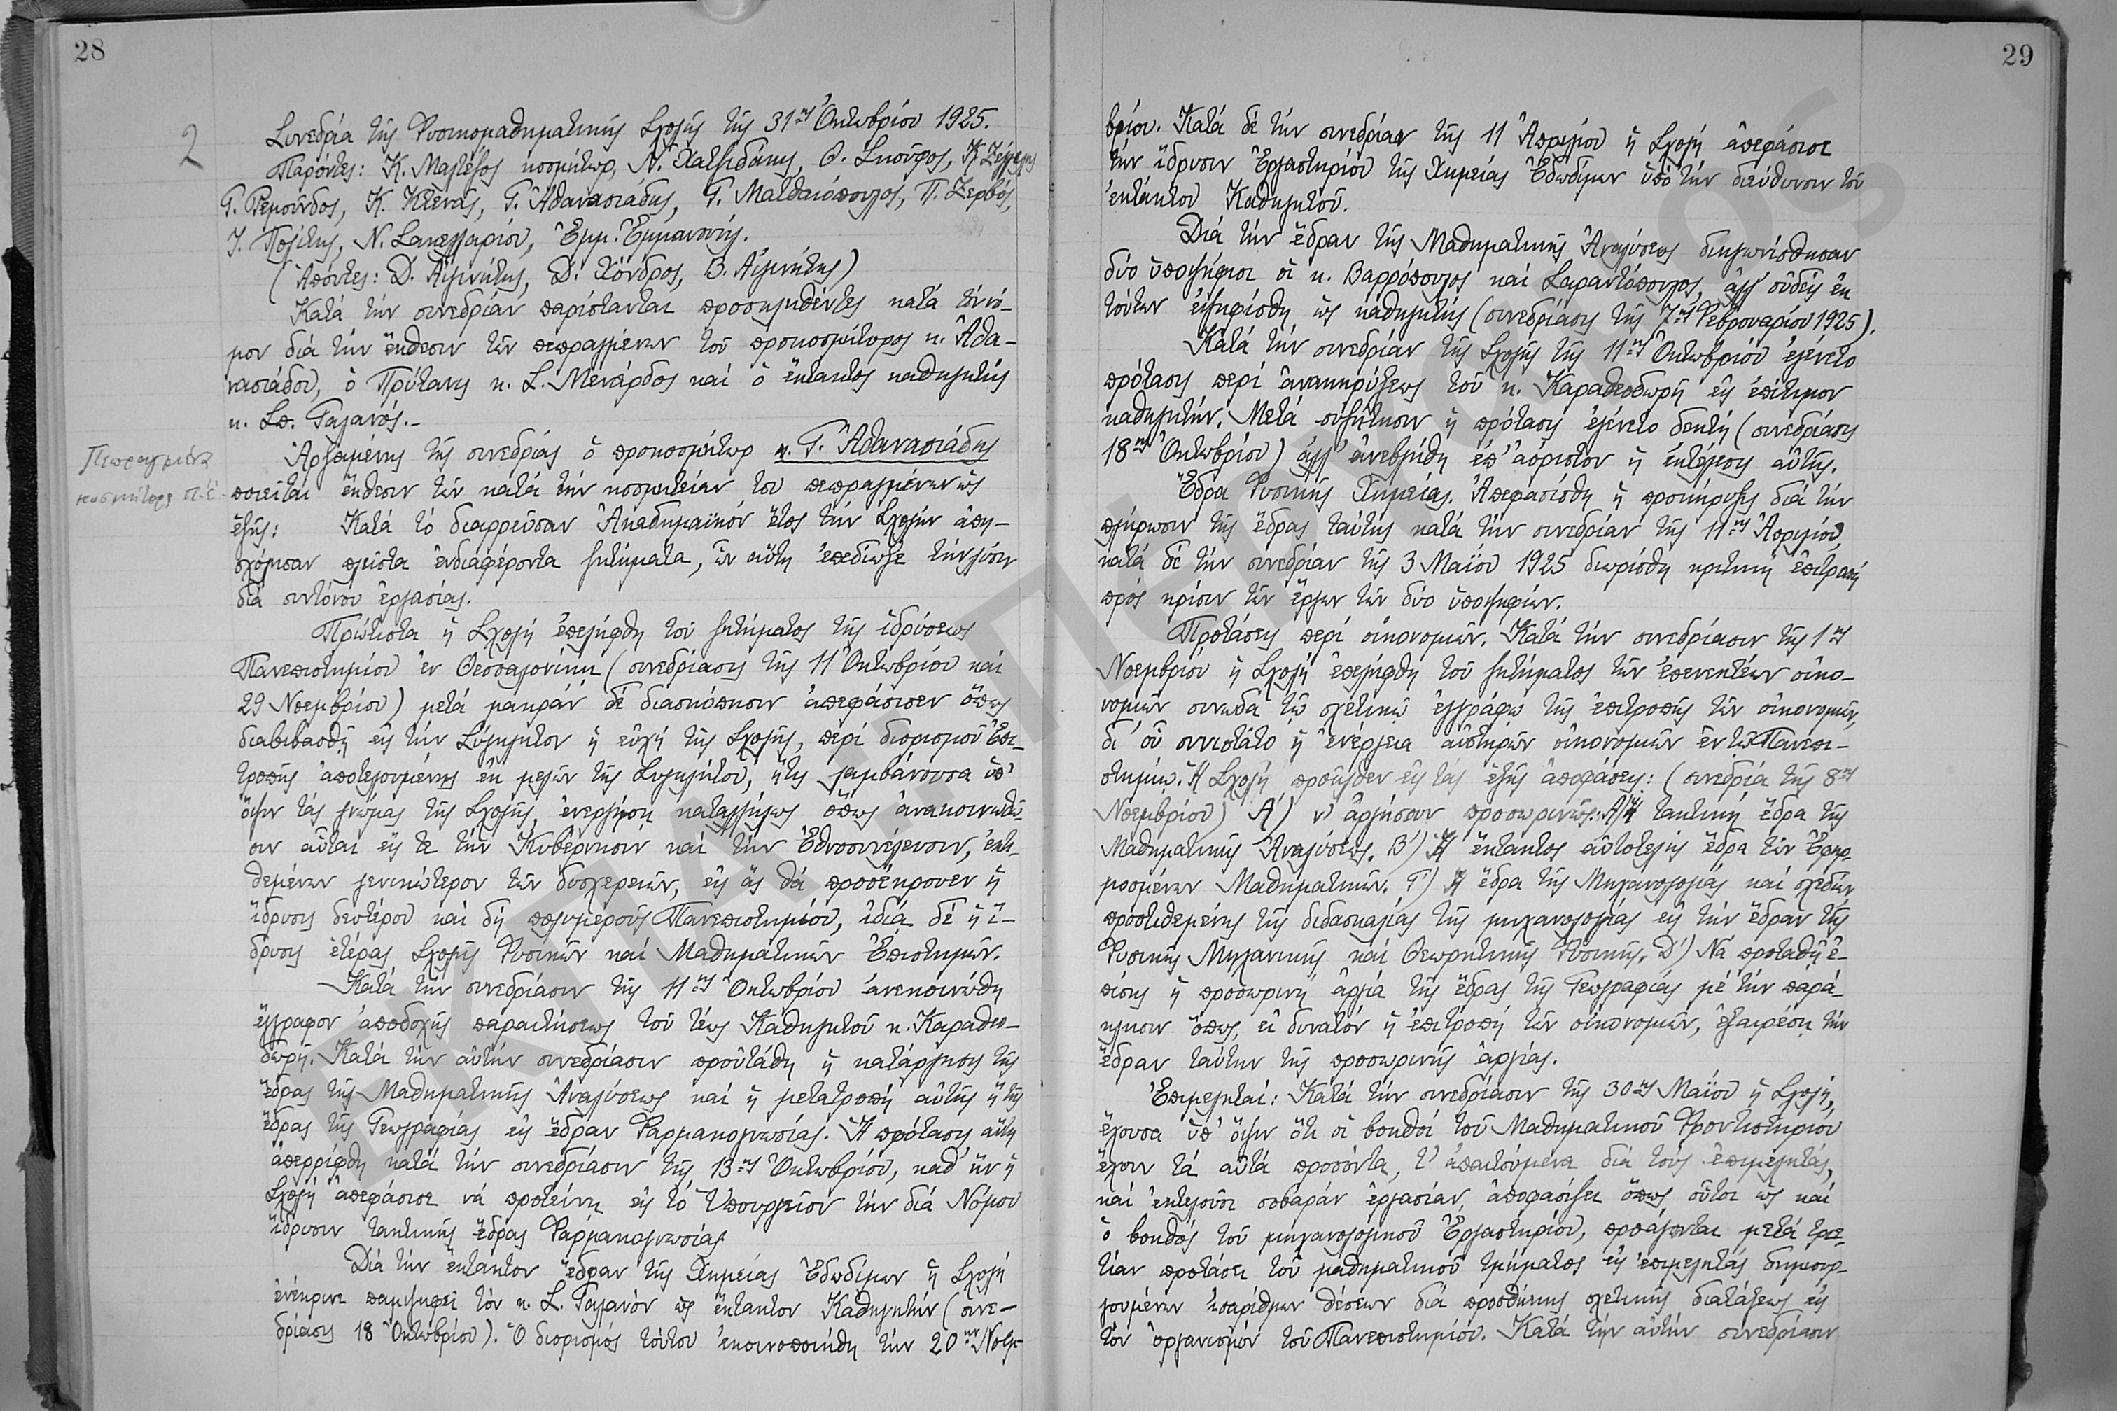 28
2
Συνεδρία τῆς Φυσικομαθηματικῆς Σχολῆς τῆς 31ης Ὀκτωβρίου 1925.
Παρόντες: Κ. Μαλτέζος κοσμήτωρ, Ν. Χατζιδάκης, Θ. Σκοῦφος, Κ. Ζέγγελης
Γ. Ρεμοῦνδος, Κ. Κτενᾶς, Γ. Ἀθανασιάδης, Γ. Ματθαιόπουλος, Π. Ζερβός,
Ι. Πολίτης, Ν. Σακελλαρίου, Ἐμμ. Ἐμμανουήλ.
(Ἀπόντες: Δ. Αἰγινήτης, Δ. Χόνδρος, Β. Αἰγινήτης)
Κατά τήν συνεδρίαν παρίστανται προσκληθέντες κατά τόν νό-
μον διά τήν ἔκθεσιν τῶν πεπραγμένων τοῦ προκοσμήτορος κ. Ἀθα-
νασιάδου, ὁ Πρύτανις κ. Σ. Μενάρδος καί ὁ ἔκτακτος καθηγητής
κ. Σπ. Γαλανός.-
Πεπραγμένα
κοσμήτορος
Ἀρξαμένης τῆς συνεδρίας ὁ προκοσμήτωρ κ. Γ. Ἀθανασιάδης
ποιεῖται ἔκθεσιν τῶν κατά τήν κοσμητείαν του πεπραγμένων ὡς
ἑξῆς: Κατά τό διαρρεῦσαν Ἀκαδημαϊκόν ἔτος τήν Σχολήν ἀπη-
σχόλησαν πλεῖστα ἐνδιαφέροντα ζητήματα, ὧν αὕτη ἐπεδίωξε τήν λύσιν
διά συντόνου ἐργασίας.
Πρώτιστα ἡ Σχολή ἐπελήφθη τοῦ ζητήματος τῆς ἱδρύσεως
Πανεπιστημίου ἐν Θεσσαλονίκη (συνεδρίασις τῆς 11 Ὀκτωβρίου καί
29 Νοεμβρίου) μετά μακράν δέ διασκόπησιν ἀπεφάσισεν ὅπως
διαβιβασθῇ εἰς τήν Σύγκλητον ἡ εὐχή τῆς Σχολῆς, περί διορισμοῦ Ἐπι-
τροπῆς ἀποτελουμένης ἐκ μελῶν τῆς Συγκλήτου, ἥτις λαμβάνουσα ὑπ'
ὄψιν τάς γνώμας τῆς Σχολῆς, ἐνεργήσῃ καταλλήλως ὅπως ἀνακοινωθῶ-
σιν αὗται εἴς τε τήν Κυβέρνησιν καί τήν Ἐθνοσυνέλευσιν, ἐκτι-
θεμένων γενικώτερον τῶν δυσχερειῶν, εἰς ἅς θά προσέκρουεν ἡ
ἵδρυσις δευτέρου καί δή πολυμεροῦς Πανεπιστημίου, ἰδίᾳ δέ ἡ ἵ-
δρυσις ἑτέρας Σχολῆς Φυσικῶν καί Μαθηματικῶν Ἐπιστημῶν.
Κατά τήν συνεδρίασιν τῆς 11ης Ὀκτωβρίου ἀνεκοινώθη
ἔγγραφον ἀποδοχῆς παραιτήσεως τοῦ τέως Καθηγητοῦ κ. Καραθεο-
δωρῆ. Κατά τήν αὐτήν συνεδρίασιν προὐτάθη ἡ κατάργησις τῆς
ἕδρας τῆς Μαθηματικῆς Ἀναλύσεως καί ἡ μετατροπή αὐτῆς ἤ τῆς
ἕδρας τῆς Γεωγραφίας εἰς ἕδραν Φαρμακογνωσίας. Ἡ πρότασις αὕτη
ἀπερρίφθη κατά τήν συνεδρίασιν τῆς 13ης Ὀκτωβρίου, καθ' ἥν ἡ
Σχολή ἀπεφάσισε νά προτείνῃ εἰς τό Ὑπουργεῖον τήν διά Νόμου
ἵδρυσιν τακτικῆς ἕδρας Φαρμακογνωσίας
Διά τήν ἔκτακτον ἕδραν τῆς Χημείας Ἐδωδίμων ἡ Σχολή
ἐνέκρινε παμψηφεί τόν κ. Σ. Γαλανόν ὡς ἔκτακτον Καθηγητήν (συνε-
δρίασις 18 Ὀκτωβρίου). Ὁ διορισμός τούτου ἐκοινοποιήθη τήν 20ην Νοεμ-
29
βρίου. Κατά δέ τήν συνεδρίαν τῆς 11 Ἀπριλίου ἡ Σχολή ἀπεφάσισε
τήν ἵδρυσιν Ἐργαστηρίου τῆς Χημείας Ἐδωδίμων ὑπό τήν διεύθυνσιν τοῦ
ἐκτάκτου Καθηγητοῦ.
Διά τήν ἕδραν τῆς Μαθηματικῆς Ἀναλύσεως διηγωνίσθησαν
δύο ὑποψήφιοι οἱ κ. Βαρόπουλος καί Σαραντόπουλος, ἀλλ' οὐδείς ἐκ
τούτων ἐψηφίσθη ὡς καθηγητής (συνεδρίασις τῆς 7ης Φεβρουαρίου 1925).
Κατά τήν συνεδρίαν τῆς Σχολῆς τῆς 11ης Ὀκτωβρίου ἐγένετο
πρότασις περί ἀνακηρύξεως τοῦ κ. Καραθεοδωρῆ εἰς ἐπίτιμον
καθηγητήν. Μετά συζήτησιν ἡ πρότασις ἐγένετο δεκτή (συνεδρίασις
18ης Ὀκτωβρίου) ἀλλ' ἀνεβλήθη ἐπ' ἀόριστον ἡ ἐκτέλεσις αὐτῆς.
Ἕδρα Φυσικῆς Χημείας. Ἀπεφασίσθη ἡ προκήρυξις διά τήν
πλήρωσιν τῆς ἕδρας ταύτης κατά τήν συνεδρίαν τῆς 11ης Ἀπριλίου,
κατά δέ τήν συνεδρίαν τῆς 3 Μαΐου 1925 διωρίσθη κριτική ἐπιτροπή
πρός κρίσιν τῶν ἔργων τῶν δύο ὑποψηφίων.
Προτάσεις περί οἰκονομιῶν. Κατά τήν συνεδρίασιν τῆς 1ης
Νοεμβρίου ἡ Σχολή ἐπελήφθη τοῦ ζητήματος τῶν ἐπενεκτέων οἰκο-
νομιῶν συνωδά τῷ σχετικῷ ἐγγράφῳ τῆς ἐπιτροπῆς τῶν οἰκονομιῶν,
δι' οὗ συνιστᾶτο ἡ ἐνέργεια αὐστηρῶν οἰκονομιῶν ἐν τῷ Πανεπι-
στημίῳ. Ἡ Σχολή προῆλθεν εἰς τάς ἑξῆς ἀποφάσεις: (συνεδρία τῆς 8ης
Νοεμβρίου) Α') ν' ἀργήσουν προσωρινῶς: Α) Ἡ τακτική ἕδρα τῆς
Μαθηματικῆς Ἀναλύσεως. Β') Ἡ ἔκτακτος αὐτοτελής ἕδρα τῶν Ἐφηρ-
μοσμένων Μαθηματικῶν. Γ') Ἡ ἕδρα τῆς Μηχανολογίας καί σχεδίων
προστιθεμένης τῆς διδασκαλίας τῆς μηχανολογίας εἰς τήν ἕδραν τῆς
Φυσικῆς Μηχανικῆς καί Θεωρητικῆς Φυσικῆς. Δ') Νά προταθῇ ἐ-
πίσης ἡ προσωρινή ἀργία τῆς ἕδρας τῆς Γεωγραφίας μέ τήν παρά-
κλησιν ὅπως, εἰ δυνατόν ἡ ἐπιτροπή τῶν οἰκονομιῶν, ἐξαιρέσῃ τήν
ἕδραν ταύτην τῆς προσωρινῆς ἀργίας.
Ἐπιμεληταί: Κατά τήν συνεδρίασιν τῆς 30ης Μαΐου ἡ Σχολή,
ἔχουσα ὑπ' ὄψιν ὅτι οἱ βοηθοί τοῦ Μαθηματικοῦ Φροντιστηρίου
ἔχουν τά αὐτά προσόντα, τ' ἀπαιτούμενα διά τούς ἐπιμελητάς,
καί ἐκτελοῦσι σοβαράν ἐργασίαν, ἀποφασίζει ὅπως οὗτοι ὡς καί
ὁ βοηθός τοῦ μηχανολογικοῦ Ἐργαστηρίου, προάγωνται μετά τριε-
τίαν προτάσει τοῦ μαθηματικοῦ τμήματος εἰς ἐπιμελητάς δημιουρ-
γουμένων ἰσαρίθμων θέσεων διά προσθήκης σχετικῆς διατάξεως εἰς
τόν ὀργανισμόν τοῦ Πανεπιστημίου. Κατά τήν αὐτήν συνεδρίασιν